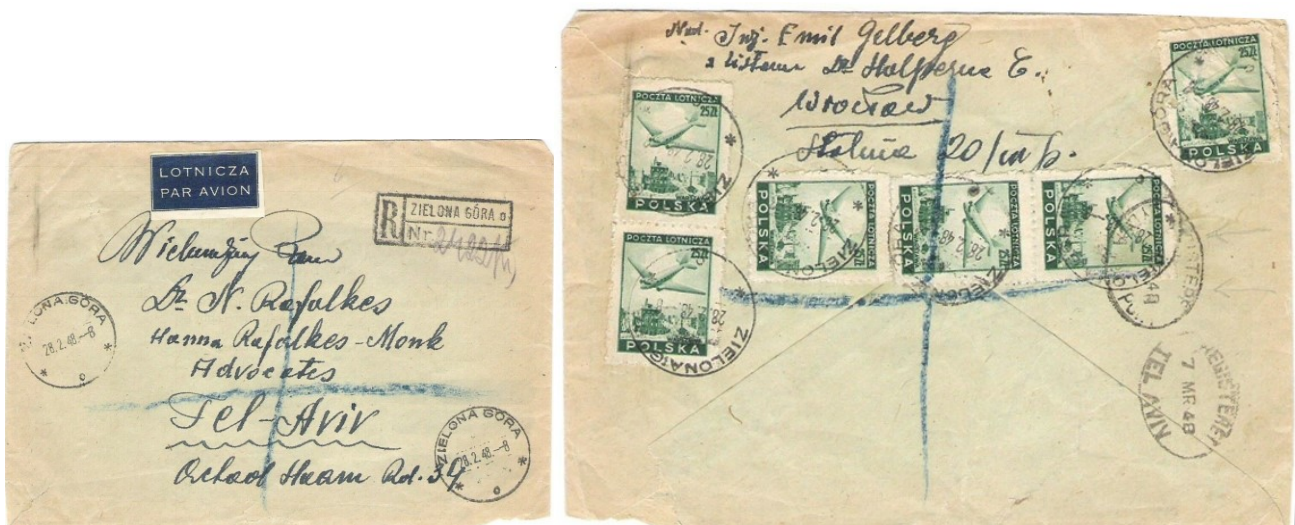 LOTNICZA
PAR AVION
R ZIELONA GÓRA o
Nr.
Wielmożny Pan
Dr. N. Rafalkes
Hanna Rafalkes-Monk
Advocates
Tel-Aviv
Achad Haam Rd. 39
ZIELONA GÓRA
28.2.48.-8
o
ZIELONA GÓRA
28.2.48.-8
o
Nad. Inż. Emil Gelberg
Dr Halperna E.
Wrocław
Stalina 20/m 6.
POCZTA LOTNICZA
25ZŁ
POLSKA
POCZTA LOTNICZA
25ZŁ
POLSKA
POCZTA LOTNICZA
25ZŁ
POLSKA
POCZTA LOTNICZA
25ZŁ
POLSKA
POCZTA LOTNICZA
25ZŁ
POLSKA
POCZTA LOTNICZA
25ZŁ
POLSKA
ZIELONA GÓRA
28.2.48
REGISTERED
7 MR 48
TEL AVIV